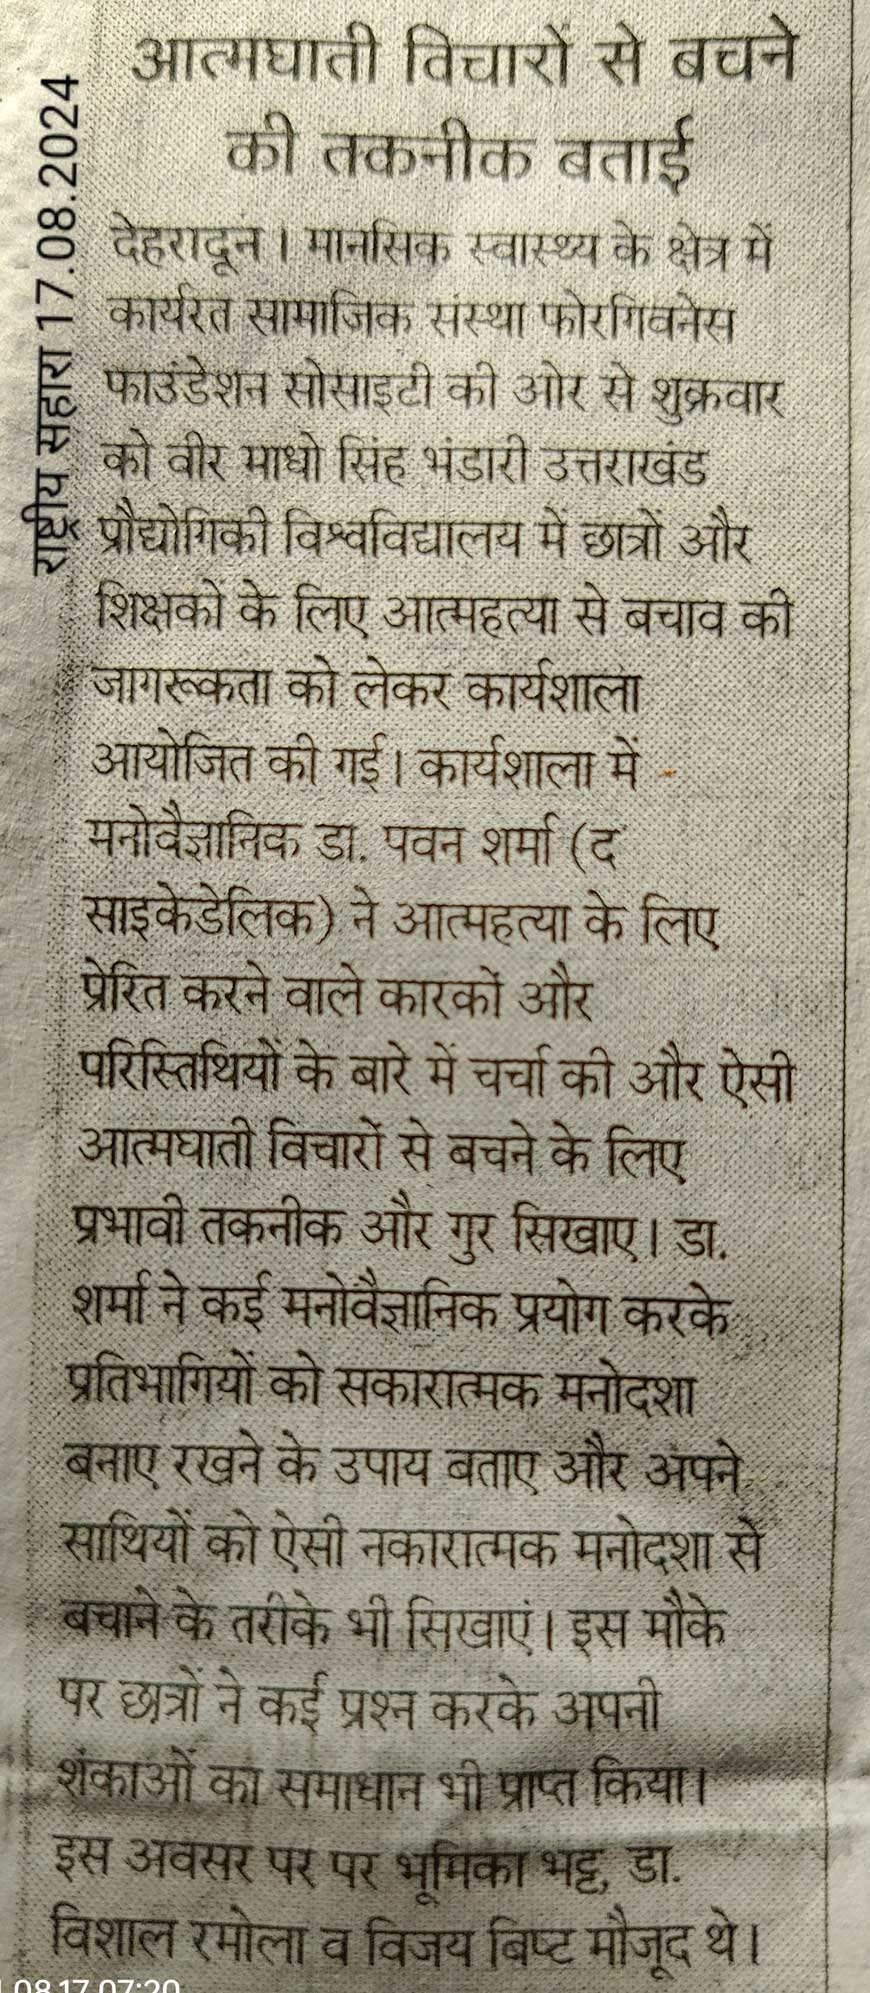 राष्ट्रीय सहारा 17.08.2024
आत्मघाती विचारों से बचने
की तकनीक बताई
देहरादून। मानसिक स्वास्थ्य के क्षेत्र में
कार्यरत सामाजिक संस्था फोरगिवनेस
फाउंडेशन सोसाइटी की ओर से शुक्रवार
को वीर माधो सिंह भंडारी उत्तराखंड
प्रौद्योगिकी विश्वविद्यालय में छात्रों और
शिक्षकों के लिए आत्महत्या से बचाव की
जागरूकता को लेकर कार्यशाला
आयोजित की गई। कार्यशाला में
मनोवैज्ञानिक डा. पवन शर्मा (द
साइकेडेलिक) ने आत्महत्या के लिए
प्रेरित करने वाले कारकों और
परिस्तिथियों के बारे में चर्चा की और ऐसी
आत्मघाती विचारों से बचने के लिए
प्रभावी तकनीक और गुर सिखाए। डा.
शर्मा ने कई मनोवैज्ञानिक प्रयोग करके
प्रतिभागियों को सकारात्मक मनोदशा
बनाए रखने के उपाय बताए और अपने
साथियों को ऐसी नकारात्मक मनोदशा से
बचाने के तरीके भी सिखाएं। इस मौके
पर छात्रों ने कई प्रश्न करके अपनी
शंकाओं का समाधान भी प्राप्त किया।
इस अवसर पर पर भूमिका भट्ट, डा.
विशाल रमोला व विजय बिष्ट मौजूद थे।
08.17 07:20